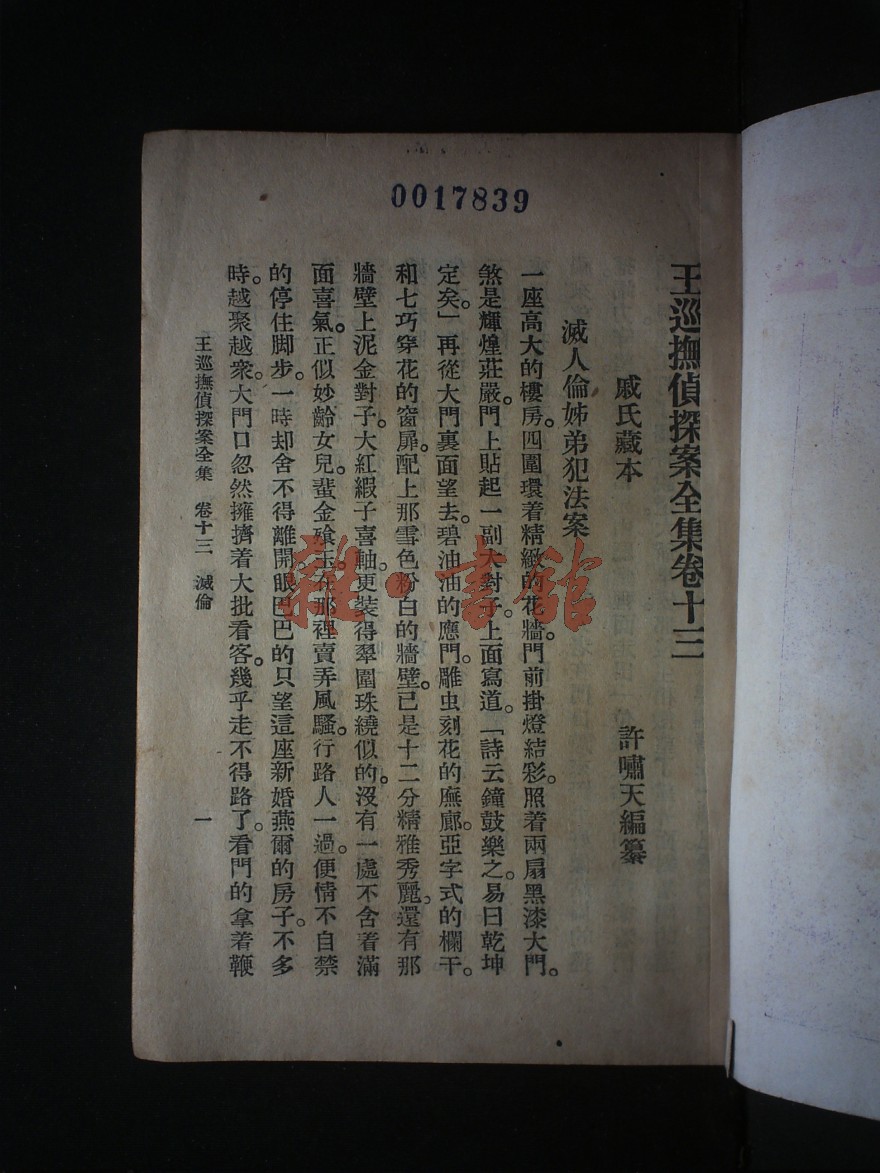 0017839
王巡撫偵探案全集卷十三
戚氏藏本 許嘯天編纂
滅人倫姊弟犯法案
一座高大的樓房。四圍環着精緻的花牆。門前掛燈結彩。照着兩扇黑漆大門。
煞是輝煌莊嚴。門上貼起一副大對子。上面寫道。「詩云鐘鼓樂之。易曰乾坤
定矣。」再從大門裏面望去。碧油油的應門。雕虫刻花的廡廊。亞字式的欄干。
和七巧穿花的窗扉。配上那雪色粉白的牆壁。已是十二分精雅秀麗。還有那
牆壁上泥金對子。大紅緞子喜軸。更裝得翠圍珠繞似的。沒有一處不含着滿
面喜氣。正似妙齡女兒。蜚金飱玉。在那裡賣弄風騷。行路人一過。便情不自禁
的停住脚步。一時却舍不得離開。眼巴巴的只望這座新婚燕爾的房子。不多
時。越聚越衆。大門口忽然擁擠着大批看客。幾乎走不得路了。看門的拿着鞭
王巡撫偵探案全集 卷十三 滅倫 一
雜·書館